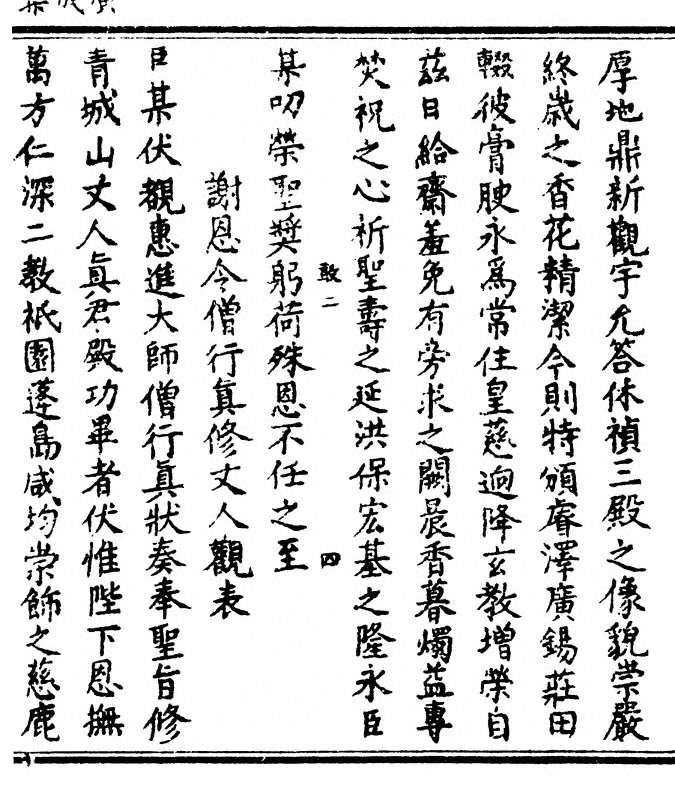 厚地鼎新觀宇允答休禎三殿之像貌崇嚴
終歲之香花精潔今則特頒睿澤廣錫莊田
輟彼膏腴永爲常住皇慈迥降玄教增榮自
茲日給齋羞免有旁求之闕晨香暮燭益專
焚祝之心祈聖壽之延洪保宏基之隆永臣
敢二
四
某叨榮聖奬躬荷殊恩不任之至
謝恩令僧行真修丈人觀表
臣某伏覩惠進大師僧行真狀奏奉聖旨修
青城山丈人真君殿功畢者伏惟陛下恩撫
萬方仁深二教祇園蓬島咸均崇飾之慈鹿